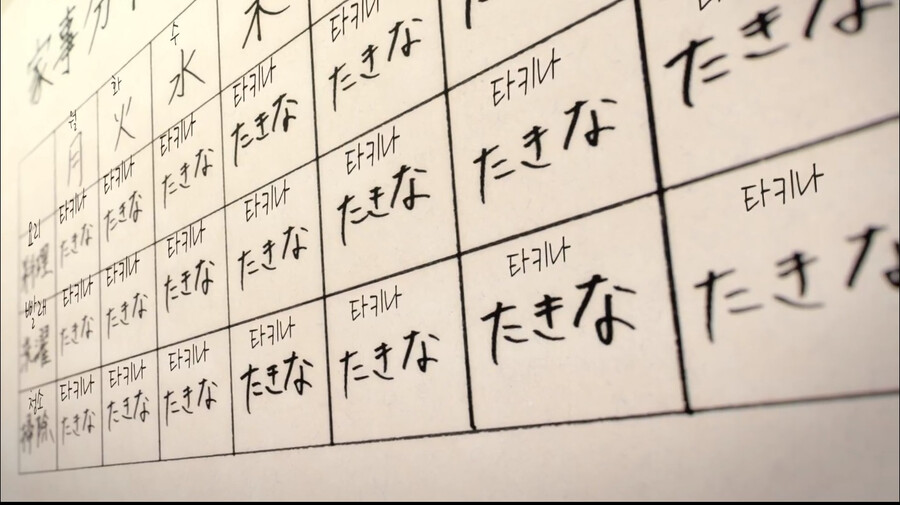 家事分
월 화 수
月 火 水 木
요리 타키나 타키나 타키나 타키나 타키나
料理 たきな たきな たきな たきな たきな
빨래 타키나 타키나 타키나 타키나 타키나 타키나
洗濯 たきな たきな たきな たきな たきな たきな たきな
청소 타키나 타키나 타키나 타키나 타키나 타키나 타키나
掃除 たきな たきな たきな たきな たきな たきな たきな